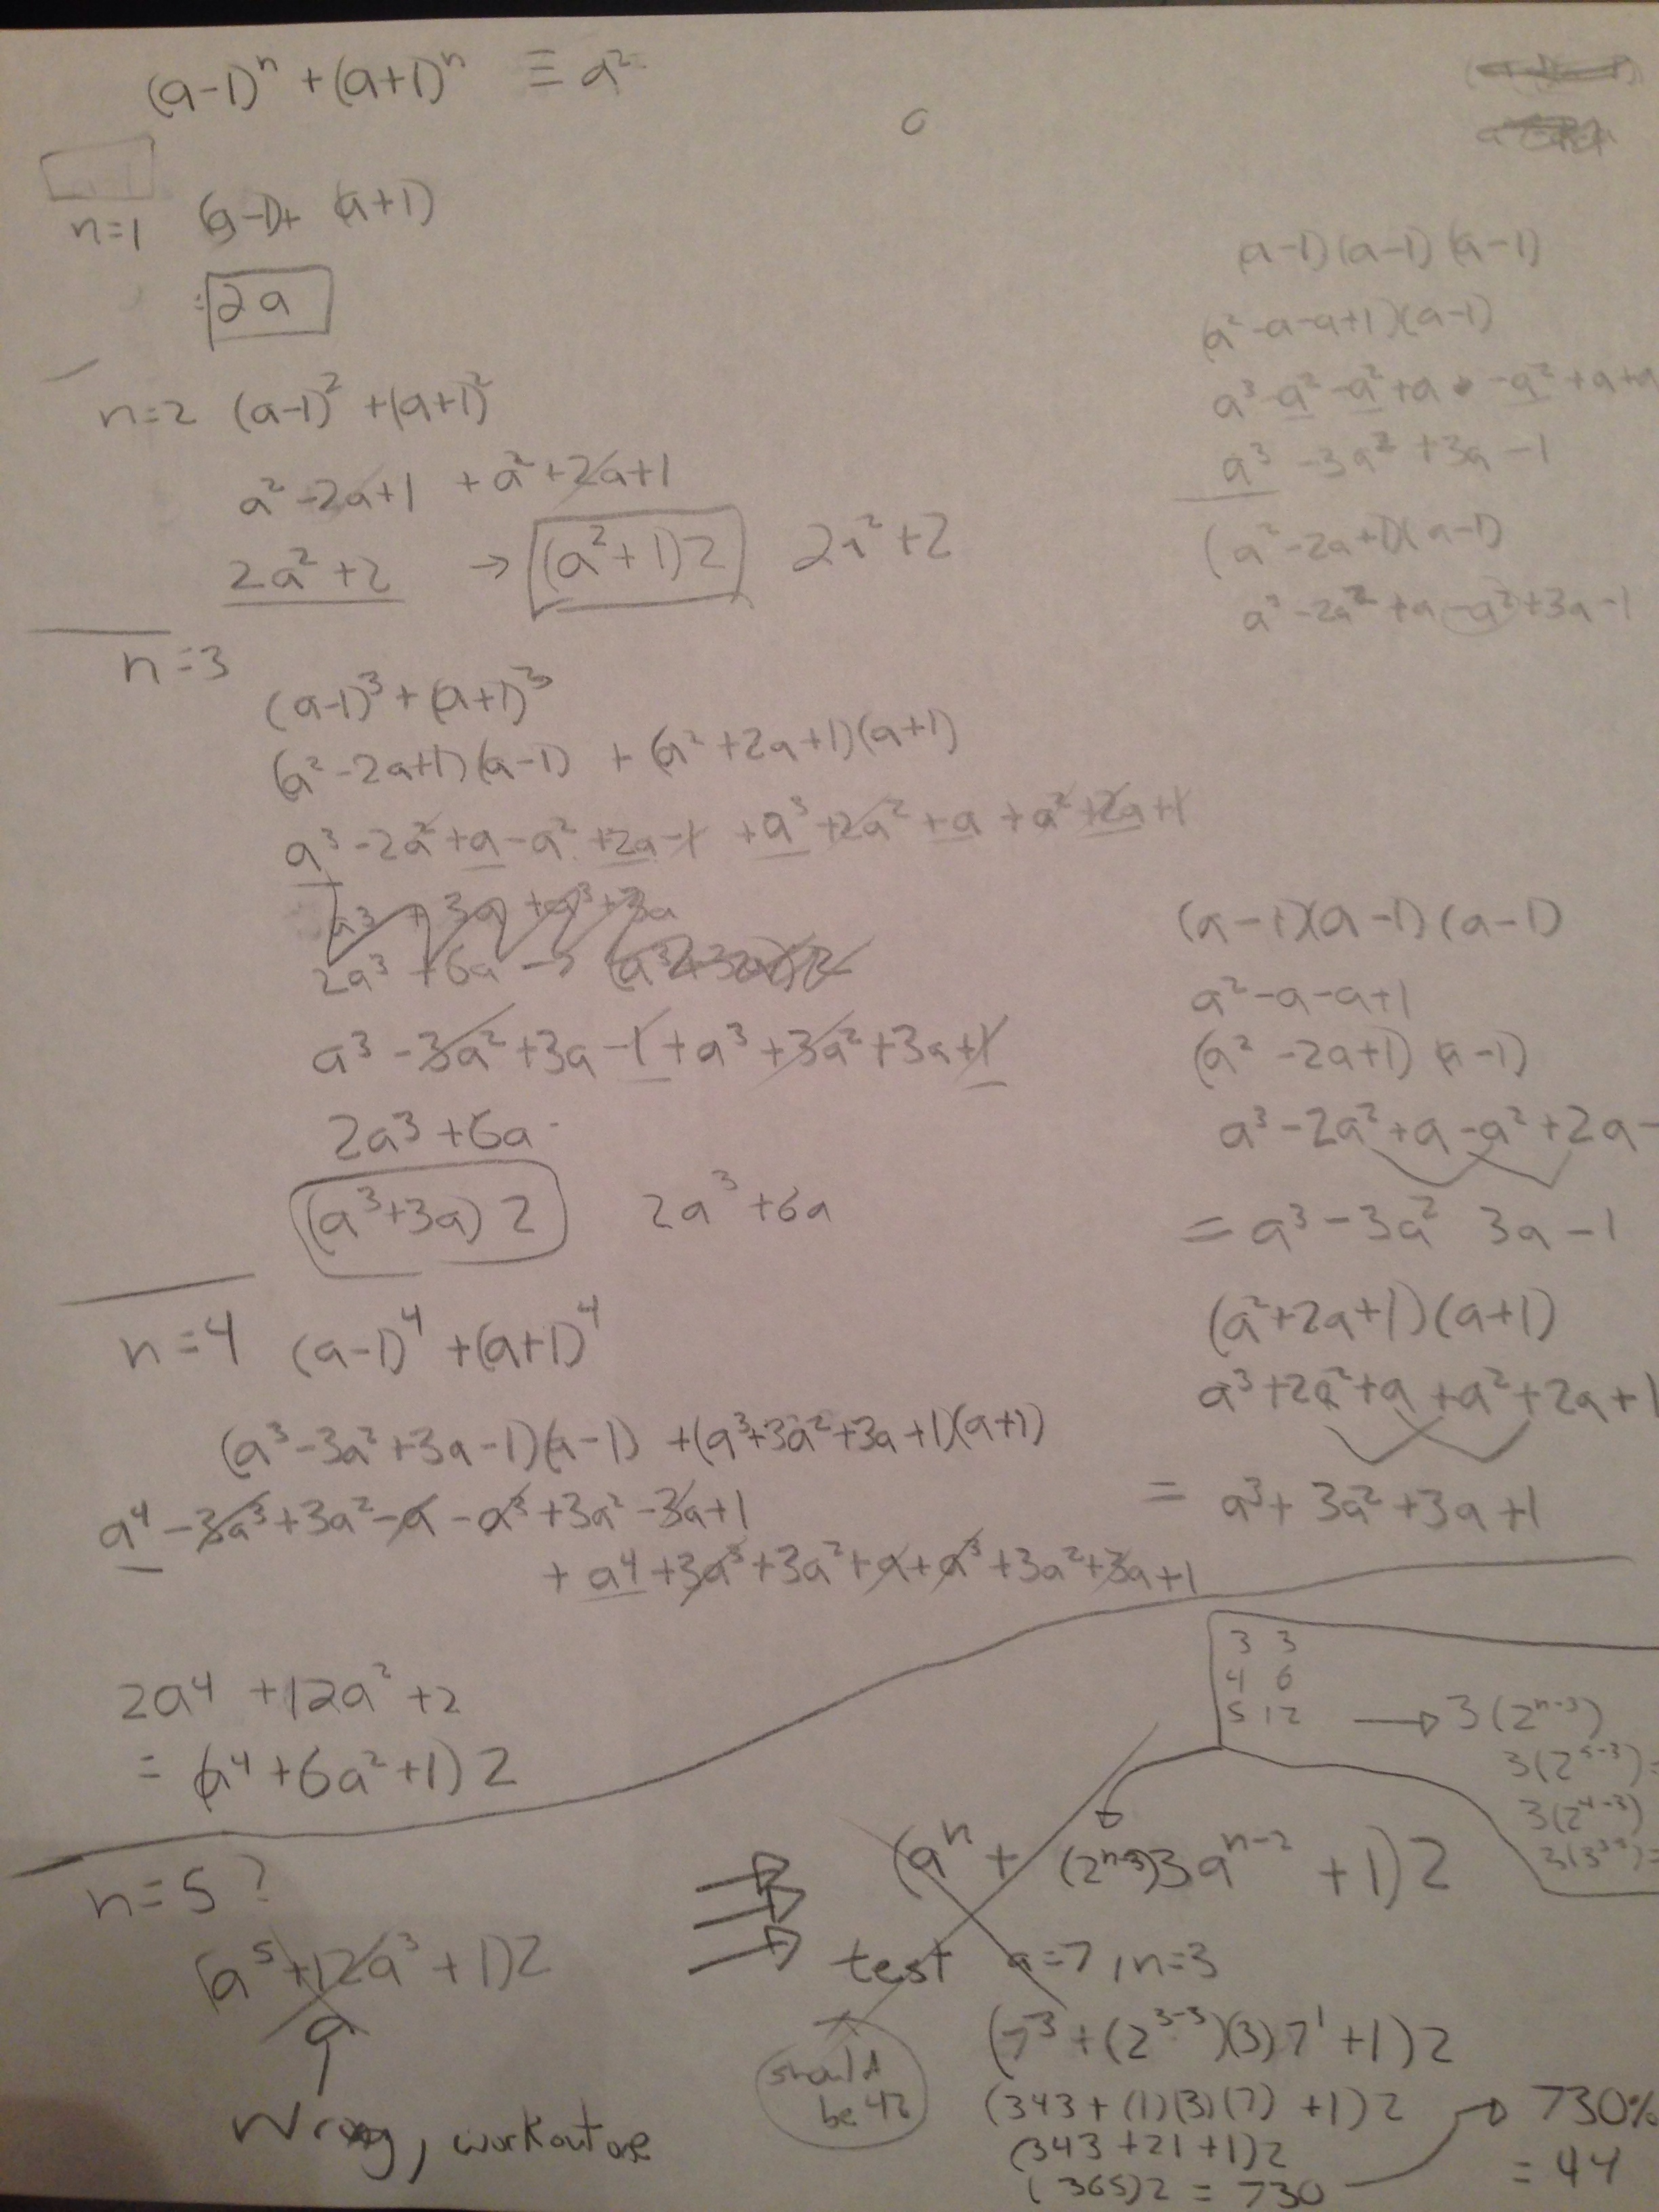 (a-1)ⁿ + (a+1)ⁿ ≡ a²
n=1 (a-1)+ (a+1)
= 2a
n=2 (a-1)² + (a+1)²
a² -2a+1 + a² +2a+1
2a² +2 → (a²+1)2 2a²+2
n=3
(a-1)³ + (a+1)³
(a² -2a+1)(a-1) + (a²+2a+1)(a+1)
a³ -2a² +a -a² +2a -1 + a³ +2a² +a +a² +2a +1
a³ + 3a + a³ + 3a
2a³ + 6a → (a³+3a)2
a³ -3a² +3a -1 + a³ +3a² +3a +1
2a³ +6a
(a³+3a)2 2a³ +6a
n=4 (a-1)⁴ + (a+1)⁴
(a³ -3a² +3a -1)(a-1) + (a³+3a²+3a+1)(a+1)
a⁴ -3a³ +3a² -a -a³ +3a² -3a +1
+ a⁴ +3a³ +3a² +a +a³ +3a² +3a +1
2a⁴ +12a² +2
= (a⁴ +6a² +1)2
n=5?
(a⁵ +12a³ +1)2
Wrong, workout one
(a-1)(a-1)(a-1)
(a² -a -a +1)(a-1)
a³ -a² -a² +a -a² +a +a
a³ -3a² +3a -1
(a² -2a+1)(a-1)
a³ -2a² +a -a² +3a -1
(a-1)(a-1)(a-1)
a² -a -a +1
(a² -2a+1)(a-1)
a³ -2a² +a -a² +2a -
= a³ -3a² 3a -1
(a²+2a+1)(a+1)
a³ +2a² +a +a² +2a +1
= a³ + 3a² +3a +1
3 3
4 6
5 12 → 3(2ⁿ⁻³)
3(2⁵⁻³) =
3(2⁴⁻³)
(aⁿ + (2ⁿ⁻³)3aⁿ⁻² + 1)2
test a=7, n=3
(7³ + (2³⁻³)(3)7¹ +1)2
(343 + (1)(3)(7) +1)2
(343 +21 +1)2
(365)2 = 730 → 730%
= 44
should
be 42